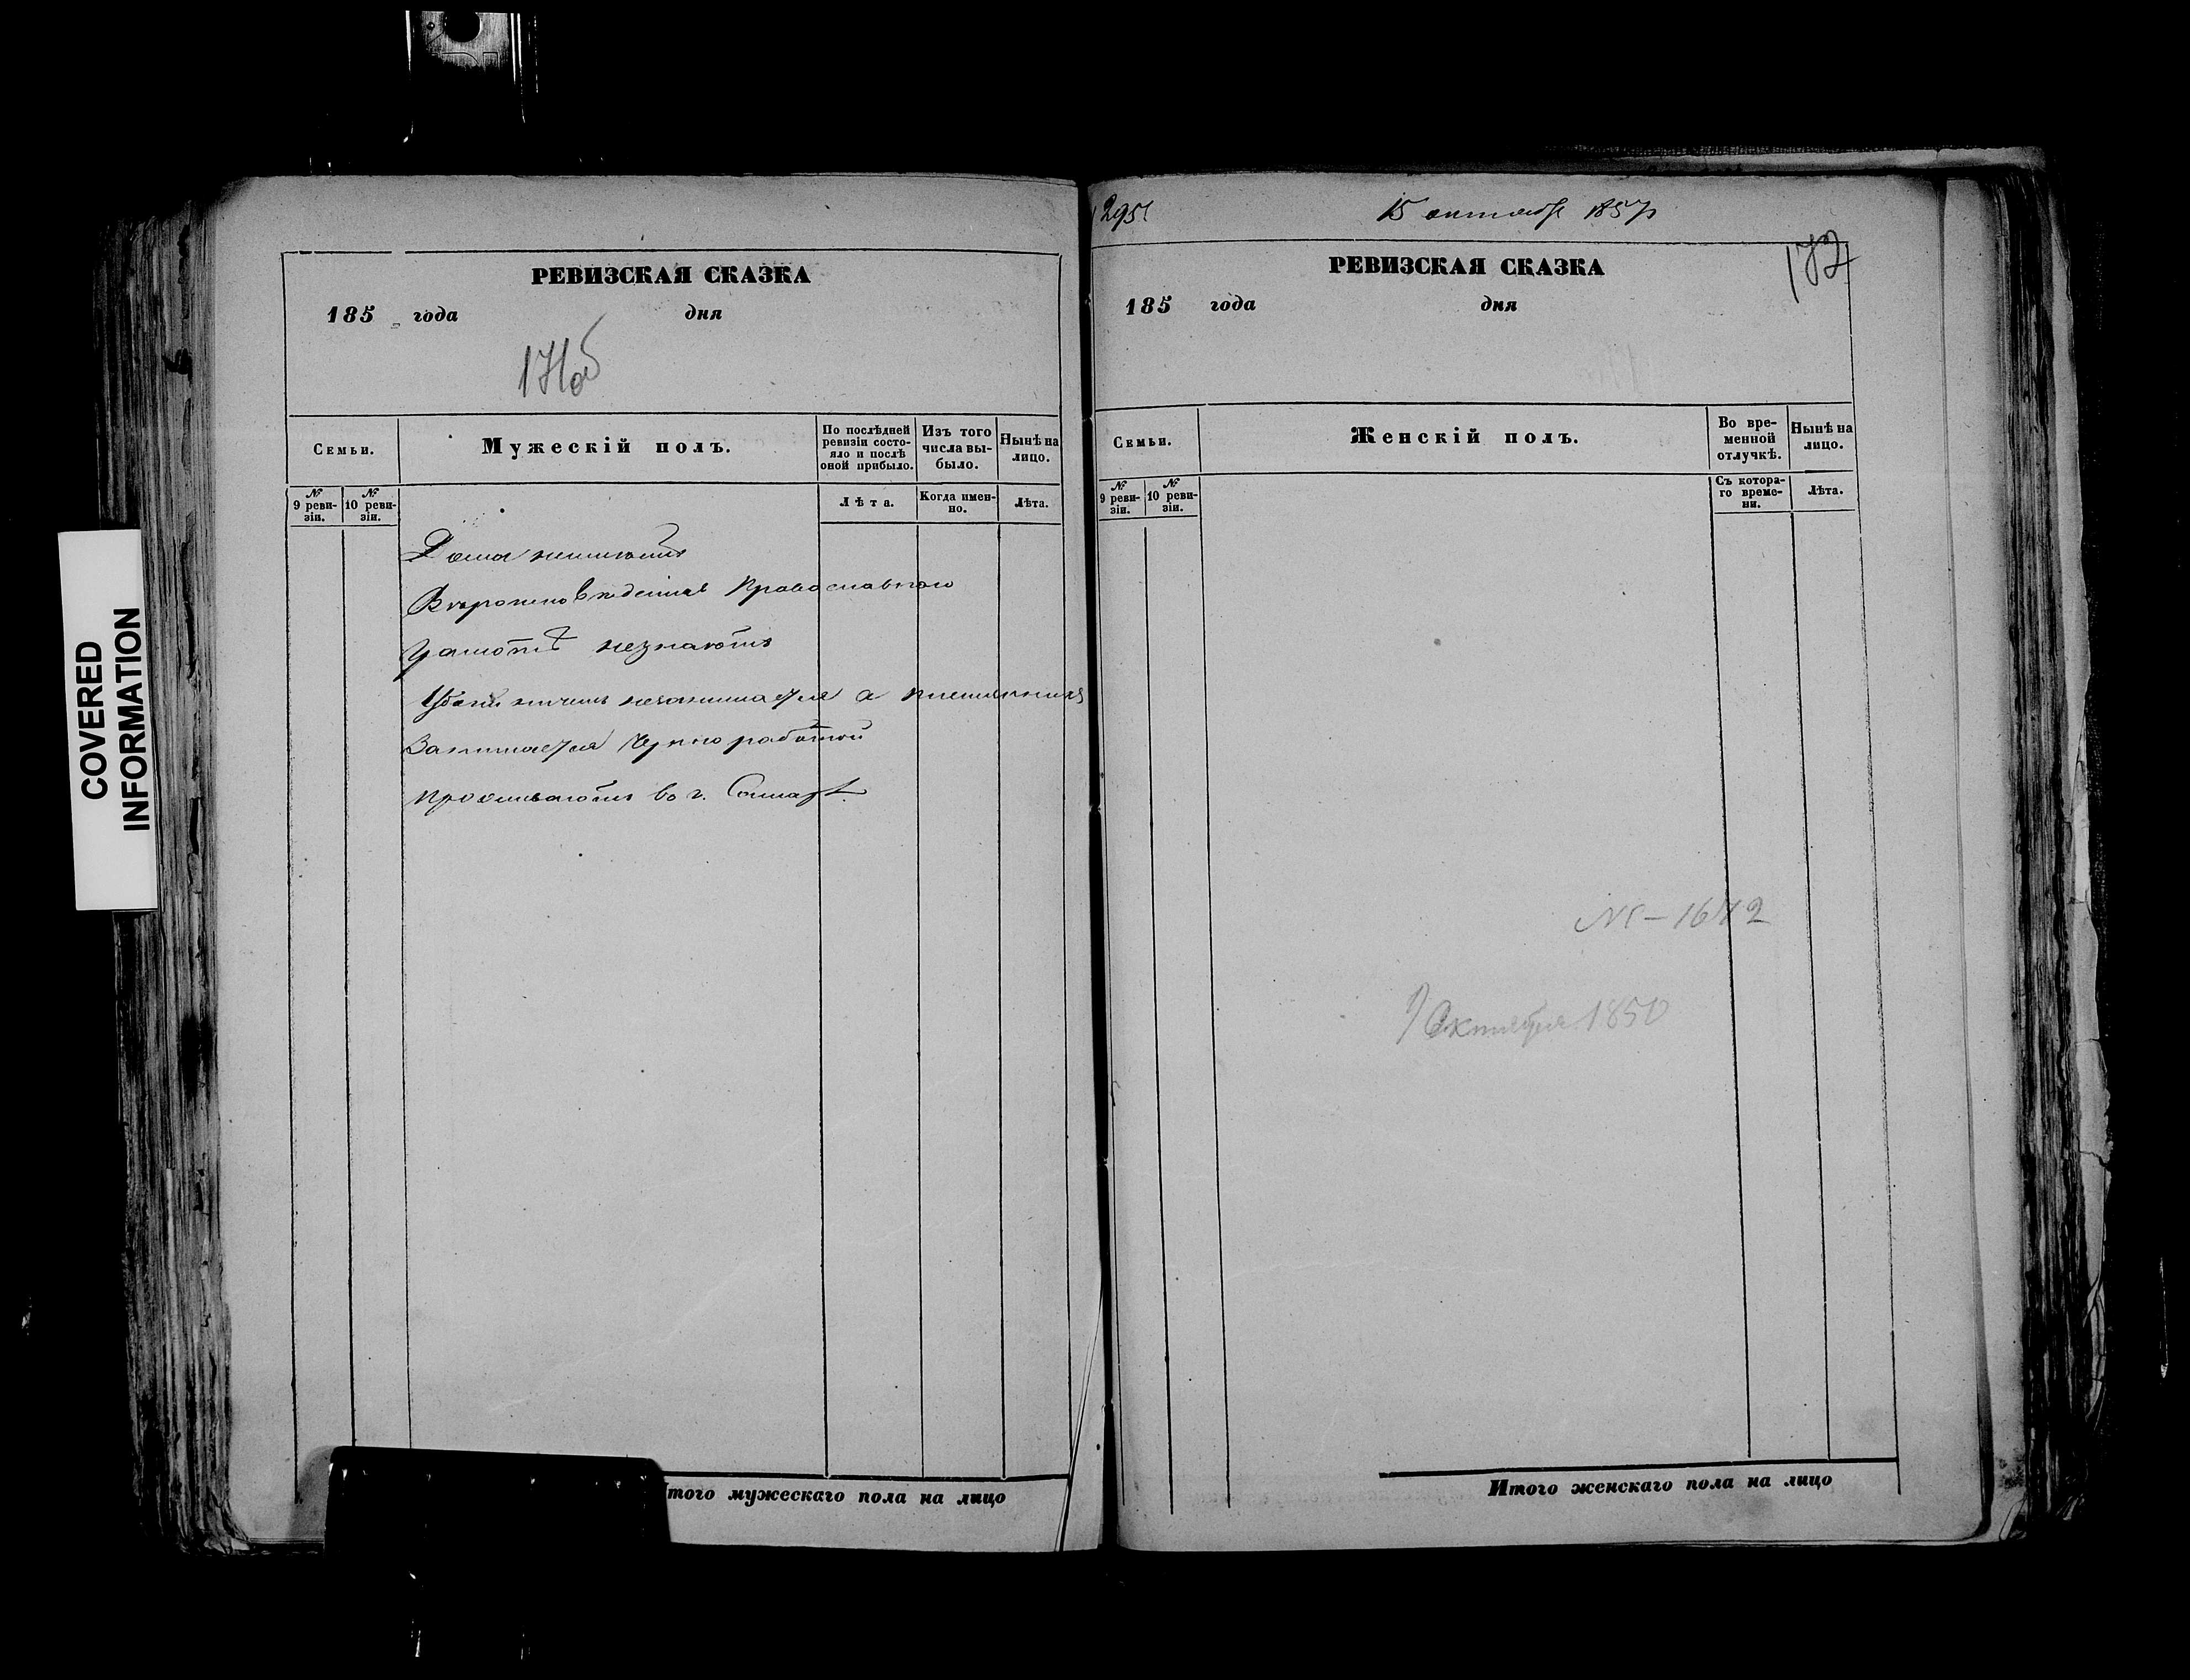 COVERED
INFORMATION
РЕВИЗСКАЯ СКАЗКА
185 года дня
171об
Семьи.
Мужескій полъ.
По послѣдней
ревизіи состо-
яло и послѣ
оной прибыло.
Изъ того
числа вы-
было.
Нынѣ на
лицо.
№
9 реви-
зіи.
№
10 реви-
зіи.
Лѣта.
Когда имен-
но.
Лѣта.
Дома неимеютъ
Вероисповеденія Православного
Грамотѣ незнаютъ
ничемъ незанимаеться а племянникъ
Занимаеться черно работой
проживаютъ во г.
Итого мужескаго пола на лицо
295
15 октября 1857
172
РЕВИЗСКАЯ СКАЗКА
185 года дня
Семьи.
Женскій полъ.
Во вре-
менной
отлучкѣ.
Нынѣ на
лицо.
№
9 реви-
зіи.
№
10 реви-
зіи.
Съ котора-
го време-
ни.
Лѣта.
№ - 1672
Октября 1850
Итого женскаго пола на лицо